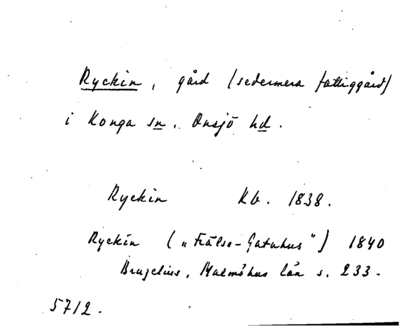 Ryckin, gård (sedermera fattiggård)
i Konga sn. Onsjö hd.
Ryckin Kb. 1838.
Ryckin („Frälse-Gatuhus") 1840
Bruzelius, Malmöhus län s. 233.
5712.